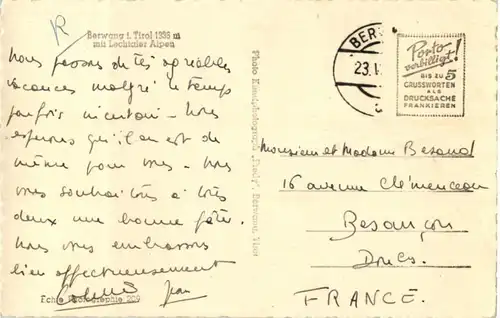 R
Berwang i. Tirol 1336 m
mit Lechtaler Alpen
Nous passons de très agréables
vacances malgré le temps
parfois incertain - Nous
espérons qu'il en est de
même pour vous - Nous
vous souhaitons à tous
deux une bonne fête.
Nous vous embrassons
bien affectueusement
Jean
Echte Photographie 209
Berwang, Tirol
BER
23.V
Porto
verbilligt!
BIS ZU 5
GRUSSWORTEN
ALS
DRUCKSACHE
FRANKIEREN
Monsieur et Madame Besand
16 avenue Clémenceau
Besançon
Doubs.
FRANCE.